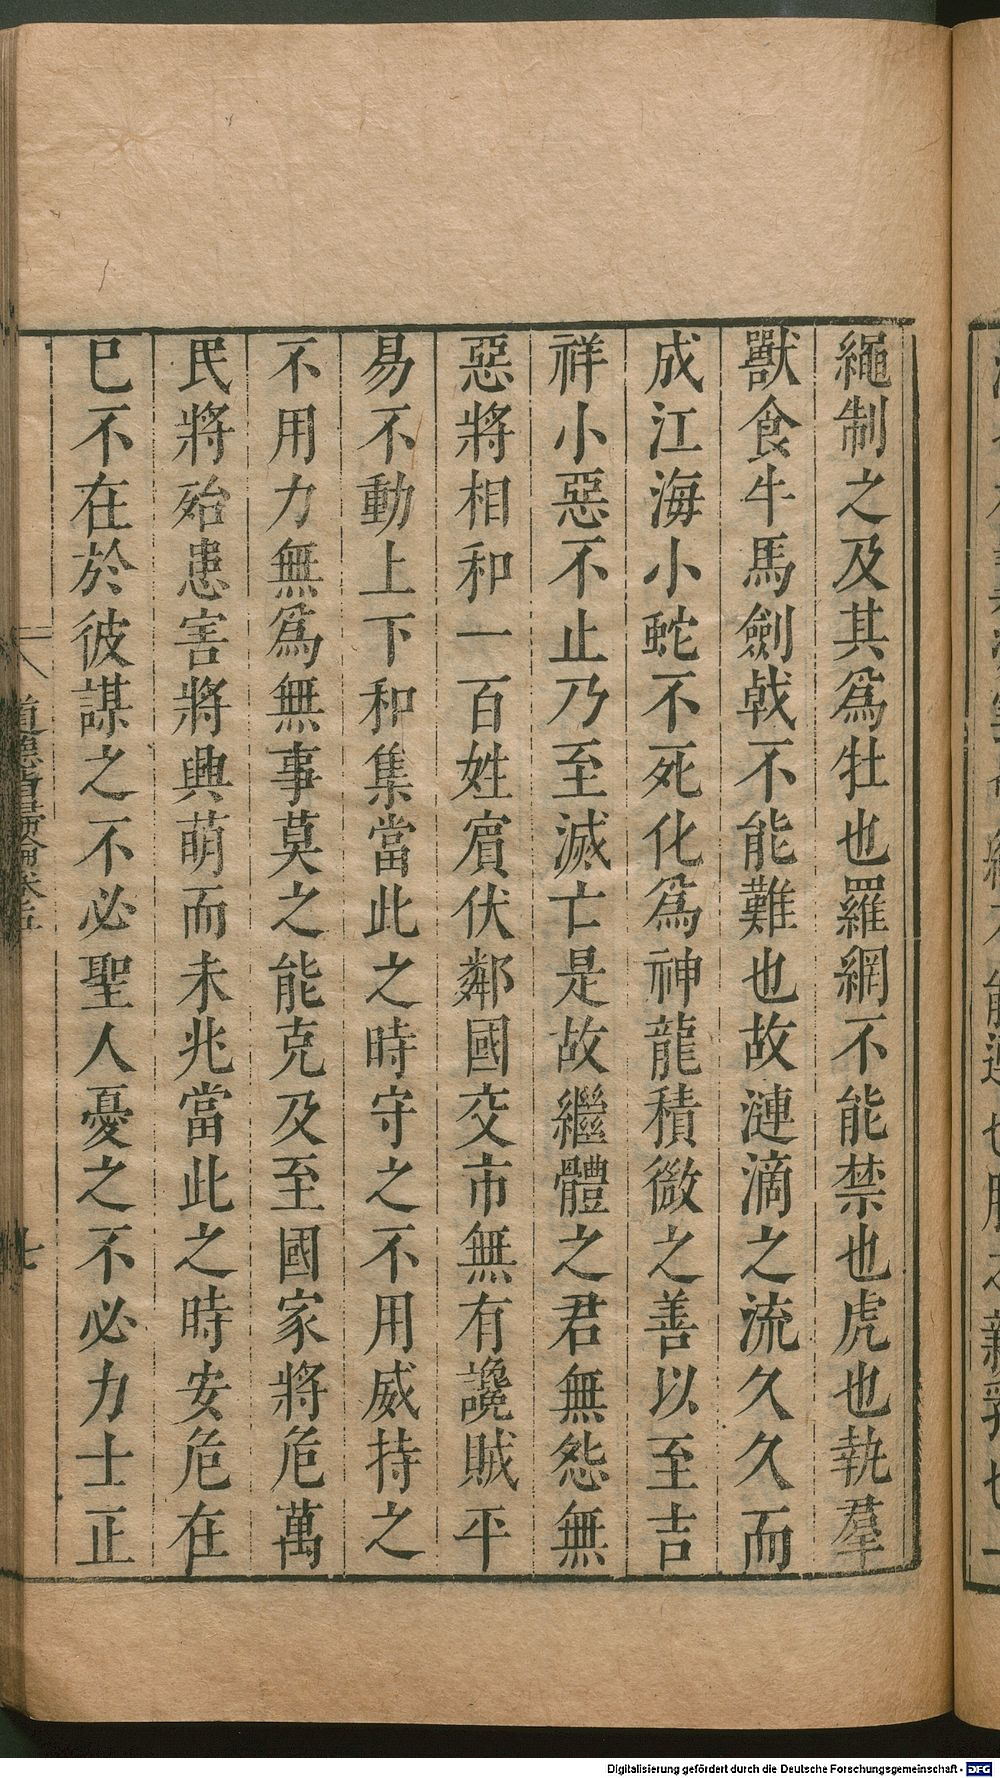 繩制之及其爲牡也羅網不能禁也虎也執羣
獸食牛馬劍戟不能難也故漣滴之流久久而
成江海小蛇不死化爲神龍積微之善以至吉
祥小惡不止乃至滅亡是故繼體之君無怨無
惡將相和一百姓賓伏鄰國交市無有讒賊平
易不動上下和集當此之時守之不用威持之
不用力無爲無事莫之能克及至國家將危萬
民將殆患害將興萌而未兆當此之時安危在
已不在於彼謀之不必聖人憂之不必力士正
道德指歸論卷五
七
Digitalisierung gefördert durch die Deutsche Forschungsgemeinschaft - DFG